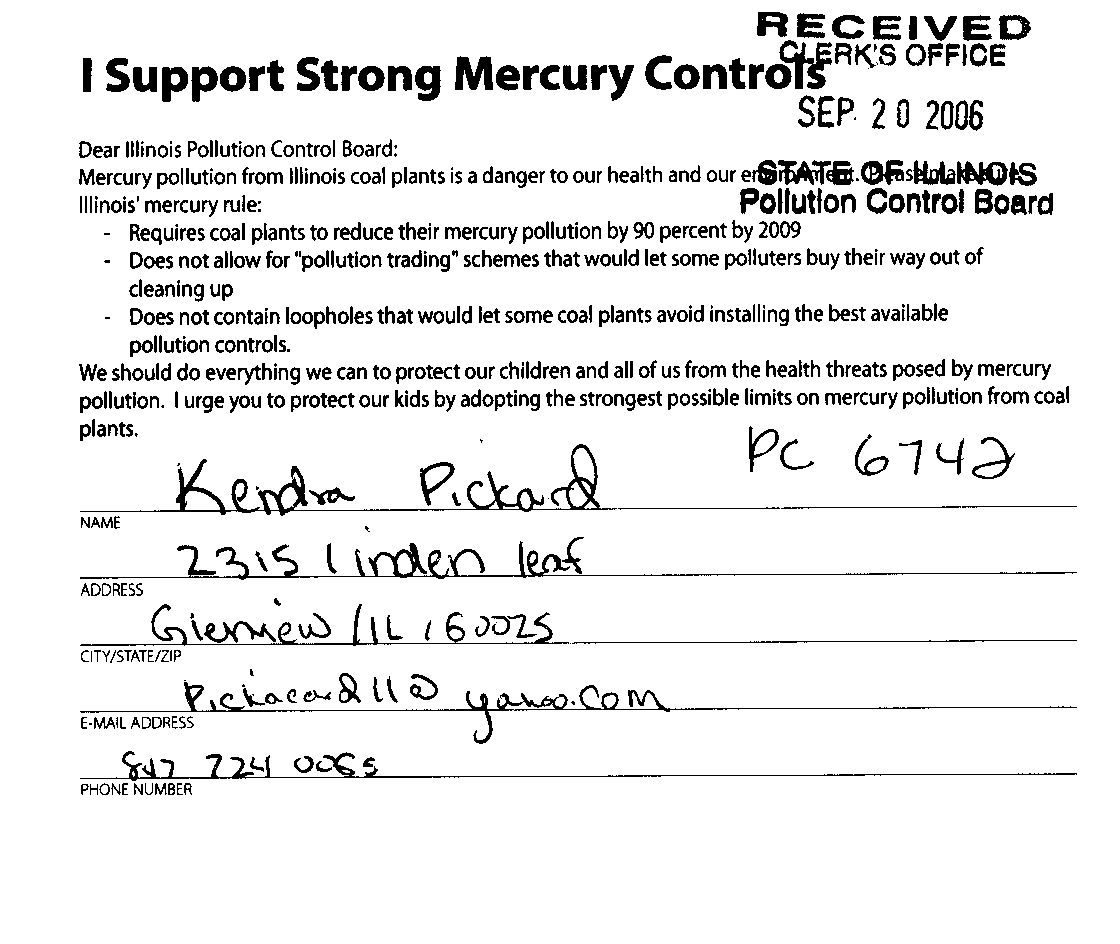 RECEIVED
CLERK'S OFFICE
I Support Strong Mercury Controls
SEP 20 2006
Dear Illinois Pollution Control Board:
Mercury pollution from Illinois coal plants is a danger to our health and our environment. Please make sure
STATE OF ILLINOIS
Illinois' mercury rule:
Pollution Control Board
- Requires coal plants to reduce their mercury pollution by 90 percent by 2009
- Does not allow for "pollution trading" schemes that would let some polluters buy their way out of
cleaning up
- Does not contain loopholes that would let some coal plants avoid installing the best available
pollution controls.
We should do everything we can to protect our children and all of us from the health threats posed by mercury
pollution. I urge you to protect our kids by adopting the strongest possible limits on mercury pollution from coal
plants.
PC 6742
Kendra Pickard
NAME
2315 linden leaf
ADDRESS
Glenview / IL / 60025
CITY/STATE/ZIP
Pickacard11@yahoo.com
E-MAIL ADDRESS
847 724 0065
PHONE NUMBER